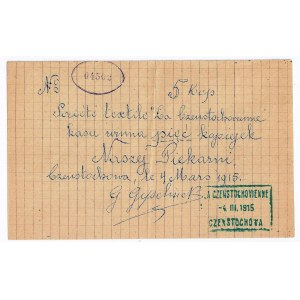 № 5
5 Kop
Société textile "La Czenstochovienne
kasa winna pięć kopiejek
Naszej Piekarni
Czenstochowa, le 4 Mars 1915.
CZENSTOCHOVIENNE
-4 III. 1915
CZENSTOCHOWA